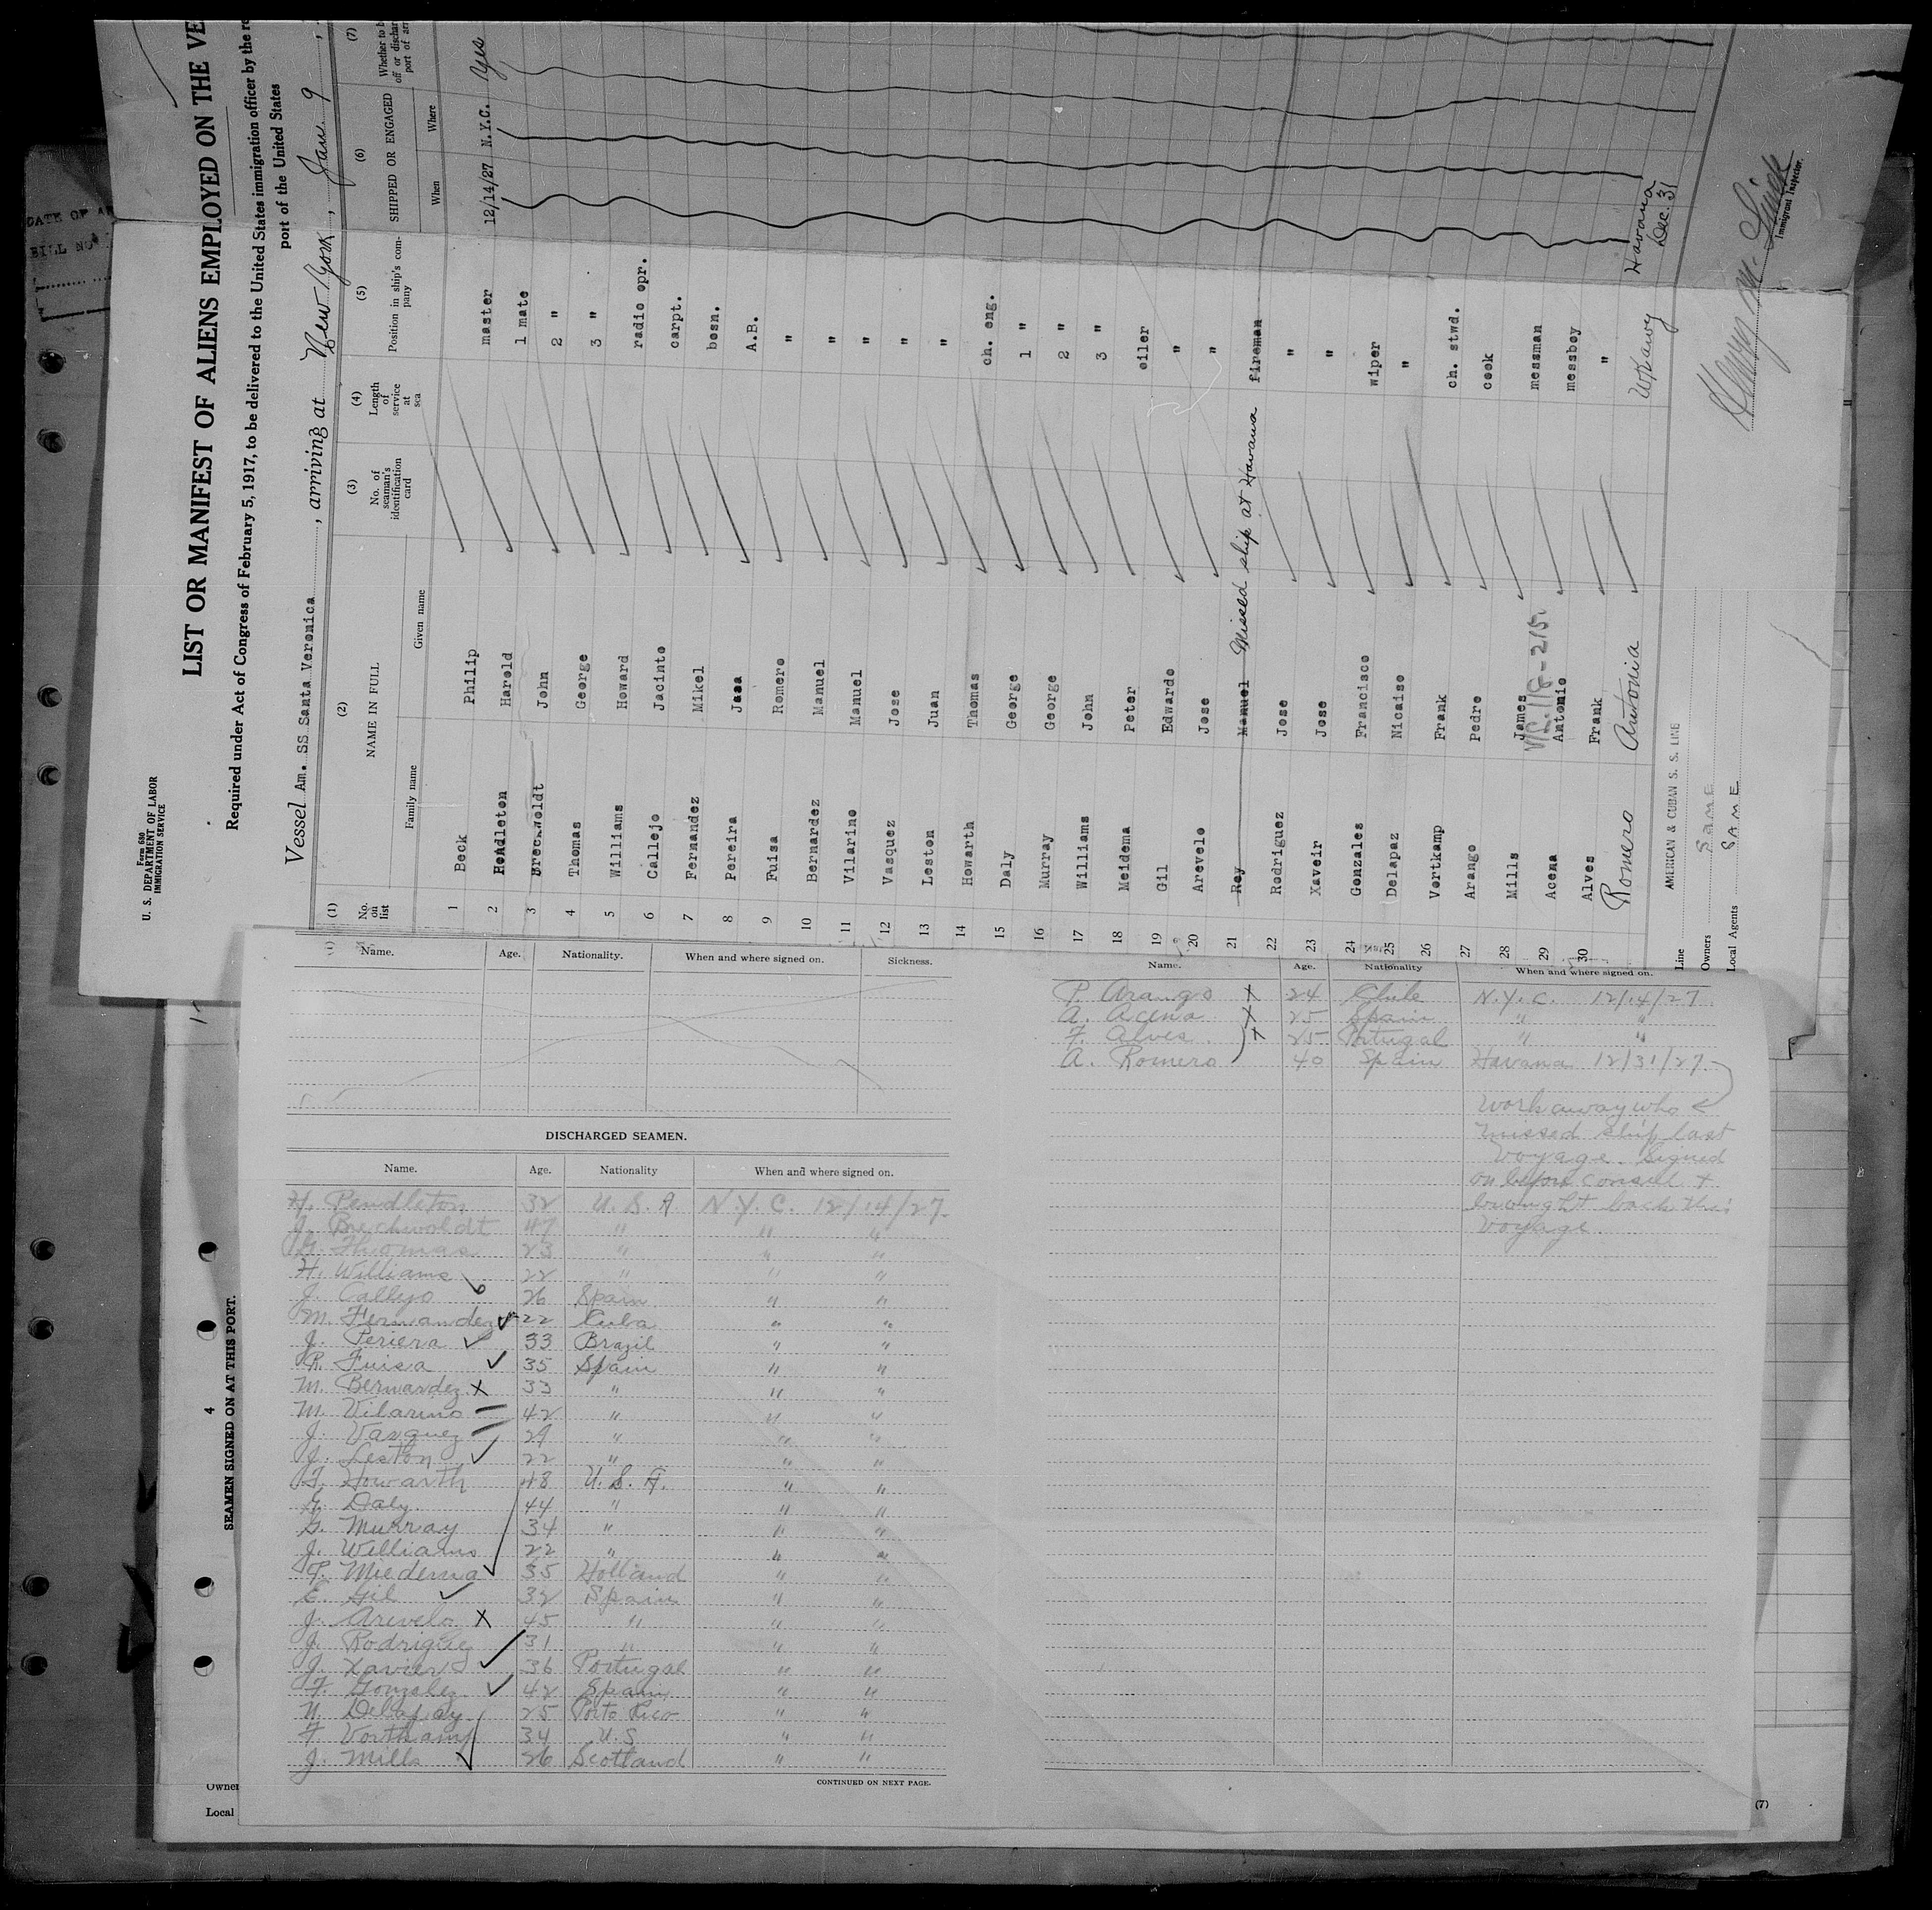 DATE OF
BILL NO
Form 680
U. S. DEPARTMENT OF LABOR
IMMIGRATION SERVICE
LIST OR MANIFEST OF ALIENS EMPLOYED ON THE VE
Required under Act of Congress of February 5, 1917, to be delivered to the United States immigration officer by the re
port of the United States
Vessel Am. SS Santa Veronica, arriving at New York, Jan. 9,
(1) (2) (3) (4) (5) (6) (7)
No. on list NAME IN FULL No. of seaman's identification card Length of service at sea Position in ship's company SHIPPED OR ENGAGED Whether to b off or discha port of ar
Family name Given name When Where
1 Beck Philip master 12/14/27 N.Y.C. Yes
2 Pendleton Harold 1 mate
3 Breckwoldt John 2 "
4 Thomas George 3 "
5 Williams Howard radio opr.
6 Callejo Jacinto carpt.
7 Fernandez Mikel bosn.
8 Pereira Jasa A.B.
9 Fuisa Romero "
10 Bernardez Manuel "
11 Vilarino Manuel "
12 Vasquez Jose "
13 Leston Juan "
14 Howarth Thomas ch. eng.
15 Daly George 1 "
16 Murray George 2 "
17 Williams John 3 "
18 Meidema Peter oiler
19 Gil Edwardo "
20 Arevelo Jose "
21 Rey Manuel Missed ship at Havana fireman
22 Rodriguez Jose "
23 Xaveir Jose "
24 Gonzales Francisco wiper
25 Delapaz Nicaiso "
26 Vortkamp Frank ch. stwd.
27 Arango Pedro cook
28 Mills James messman
29 Acena Antonio messboy
30 Alves Frank "
Romero Antonia Wkawy Havana Dec. 31
Line AMERICAN & CUBAN S. S. LINE
Owners SAME
Local Agents SAME
Immigrant Inspector.
Name. Age. Nationality. When and where signed on. Sickness.
DISCHARGED SEAMEN.
Name. Age. Nationality When and where signed on.
H. Pendleton 32 U. S. A N.Y.C. 12/14/27
J. Brechwoldt 47 " " "
G. Thomas 23 " " "
H. Williams 22 " " "
J. Callejo 26 Spain " "
M. Fernandez 22 Cuba " "
J. Periera 33 Brazil " "
R. Fuisa 35 Spain " "
M. Bernardez 33 " " "
M. Vilarino 42 " " "
J. Vasquez 29 " " "
J. Leston 22 " " "
T. Howarth 48 U. S. A. " "
G. Daly. 44 " " "
G. Murray 34 " " "
J. Williams 22 " " "
P. Miedema 35 Holland " "
E. Gil 32 Spain " "
J. Arevelo 45 " " "
J. Rodriguez 31 " " "
J. Xavier 36 Portugal " "
F. Gonzalez 42 Spain " "
N. Delapay 25 Porto Rico " "
F Vortkamp 34 U.S " "
J. Mills 26 Scotland " "
CONTINUED ON NEXT PAGE.
Name. Age. Nationality When and where signed on.
P. Arango 24 Chile N.Y.C. 12/14/27
A. Acena 25 Spain " "
F. Alves 25 Portugal " "
A. Romero 40 Spain Havana 12/31/27
Workaway who
missed ship last
voyage. Signed
on before consul +
brought back this
voyage.
4
SEAMEN SIGNED ON AT THIS PORT.
Owner
Local
(7)